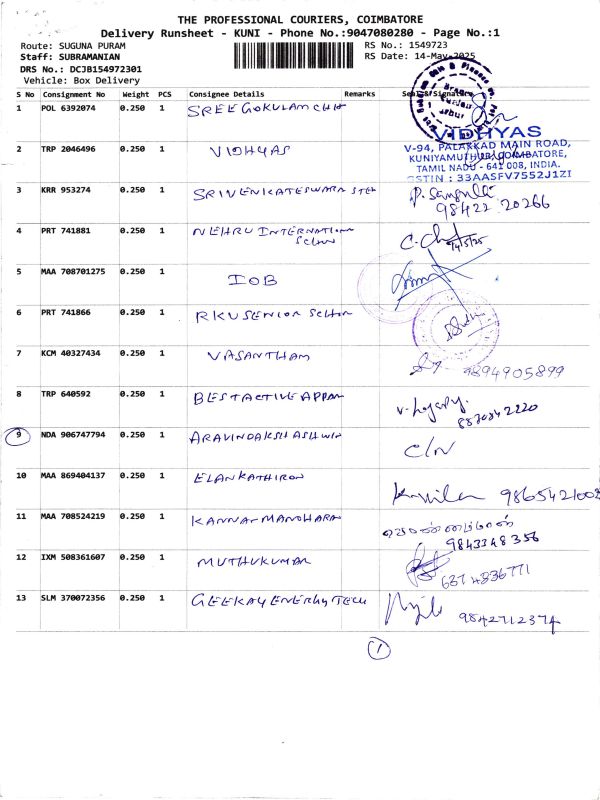 THE PROFESSIONAL COURIERS, COIMBATORE
Delivery Runsheet - KUNI - Phone No.:9047080280 - Page No.:1
Route: SUGUNA PURAM
RS No.: 1549723
Staff: SUBRAMANIAN
RS Date: 14-May-2025
DRS No.: DCJB154972301
Vehicle: Box Delivery
S No Consignment No Weight PCS Consignee Details Remarks Seal & Signature
1 POL 6392074 0.250 1 SREE GOKULAM CHH
VIDHYAS
V-94, PALAKKAD MAIN ROAD,
KUNIYAMUTHUR, COIMBATORE,
TAMIL NADU - 641 008, INDIA.
GSTIN : 33AASFV7552J1ZI
2 TRP 2046496 0.250 1 VIDHYAS
3 KRR 953274 0.250 1 SRIVENKATESWARA STEL
98422 20266
4 PRT 741881 0.250 1 NEHRU INTERNATIONAL
School
14/5/25
5 MAA 708701275 0.250 1 IOB
6 PRT 741866 0.250 1 RKV SENIOR School
7 KCM 40327434 0.250 1 VASANTHAM
9894905899
8 TRP 640592 0.250 1 BEST ACTIVE APPAR
8870342220
9 NDA 906747794 0.250 1 ARAVINDAKSH ASHWIN
C/N
10 MAA 869404137 0.250 1 ELANKATHIRON
11 MAA 708524219 0.250 1 KANNAN MANOHARAN
9843348356
12 IXM 508361607 0.250 1 MUTHUKUMAR
6374836771
13 SLM 370072356 0.250 1 GEEKAY ENERGY TECH
9842712374
1